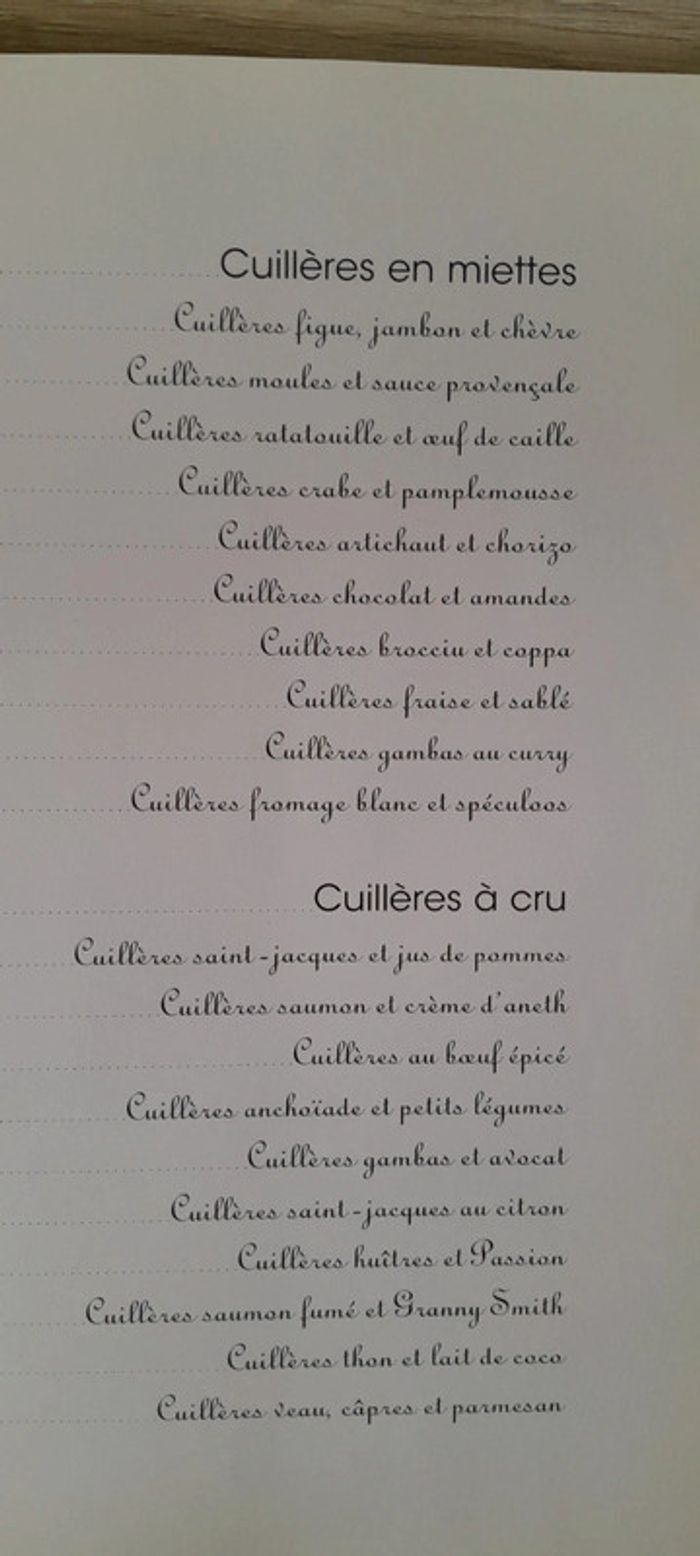 Cuillères en miettes
Cuillères figue, jambon et chèvre
Cuillères moules et sauce provençale
Cuillères ratatouille et œuf de caille
Cuillères crabe et pamplemousse
Cuillères artichaut et chorizo
Cuillères chocolat et amandes
Cuillères brocciu et coppa
Cuillères fraise et sablé
Cuillères gambas au curry
Cuillères fromage blanc et spéculoos
Cuillères à cru
Cuillères saint-jacques et jus de pommes
Cuillères saumon et crème d'aneth
Cuillères au bœuf épicé
Cuillères anchoïade et petits légumes
Cuillères gambas et avocat
Cuillères saint-jacques au citron
Cuillères huîtres et Passion
Cuillères saumon fumé et Granny Smith
Cuillères thon et lait de coco
Cuillères veau, câpres et parmesan